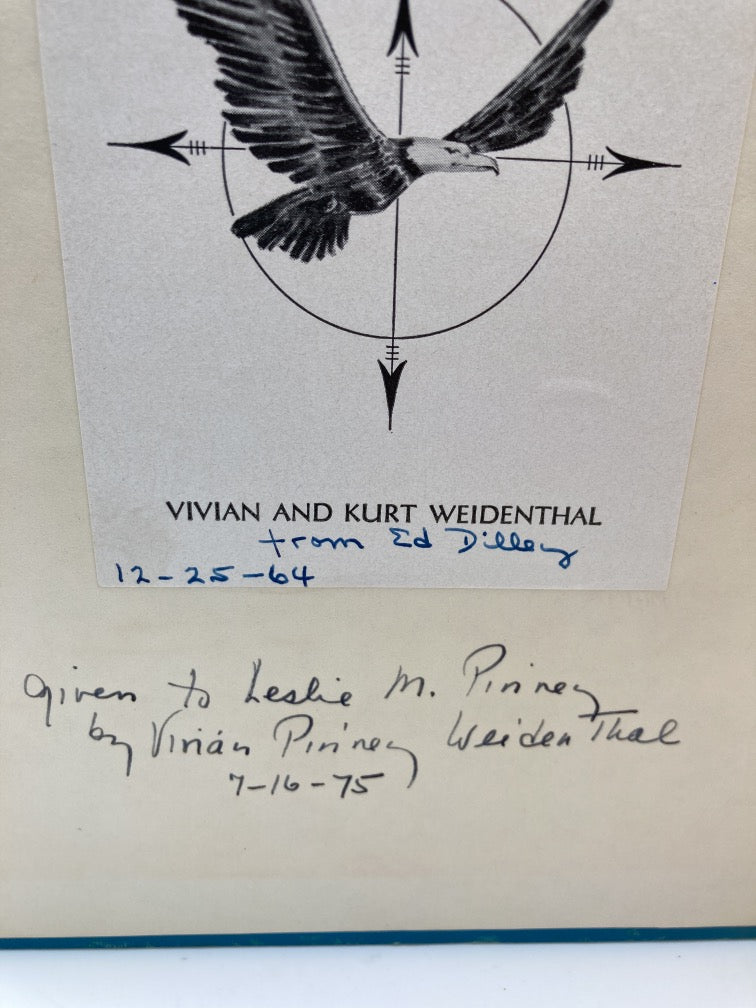 VIVIAN AND KURT WEIDENTHAL
from Ed Dilley
12-25-64
given to Leslie M. Pinney
by Vivian Pinney Weidenthal
7-16-75